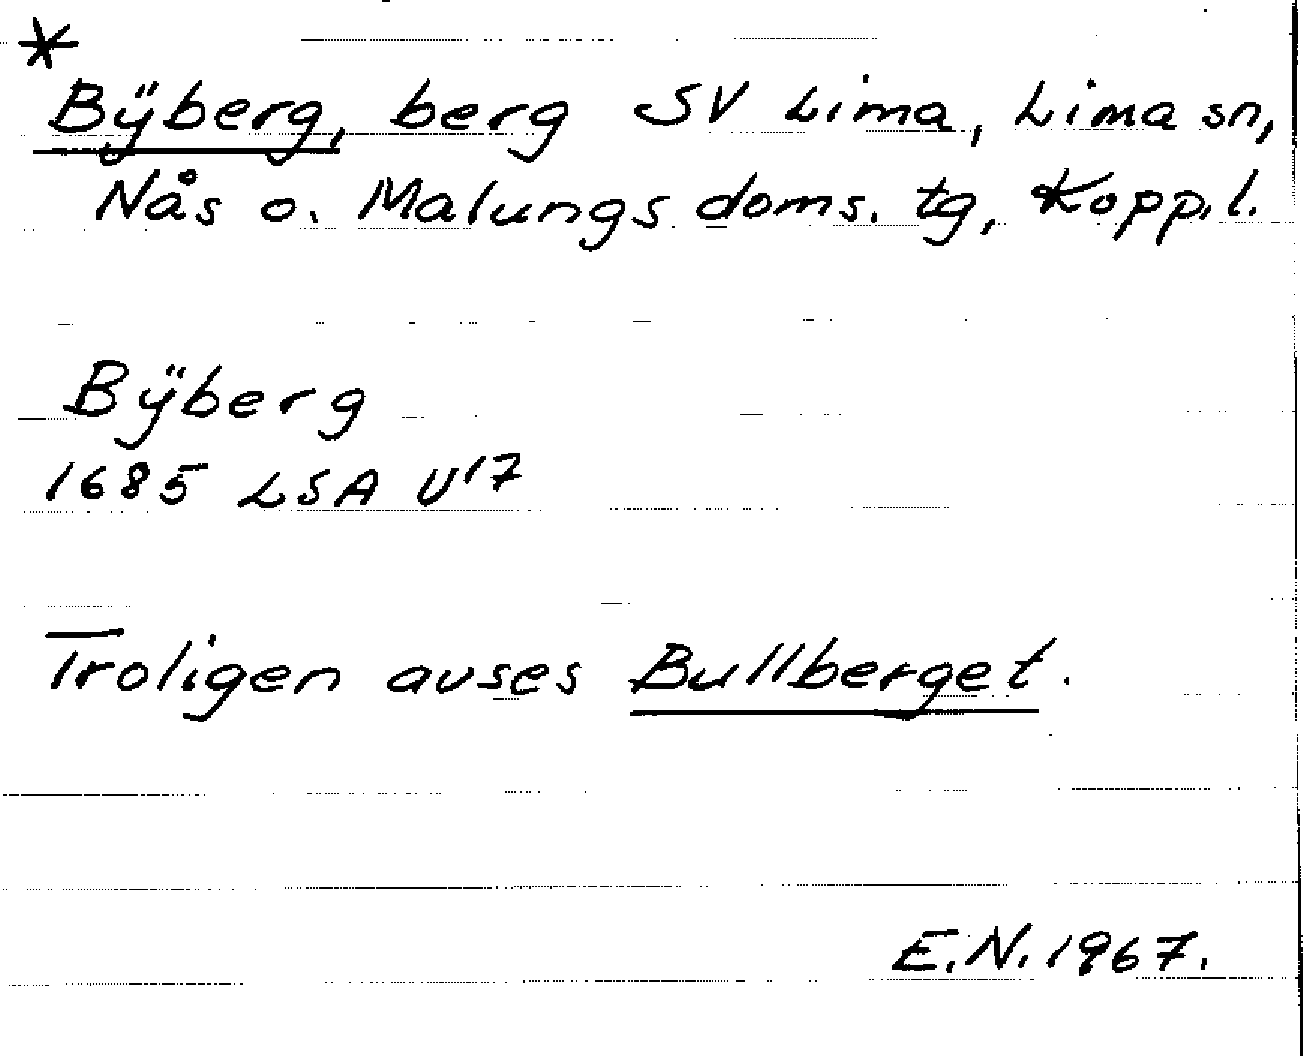 *
Bÿberg, berg SV Lima, Lima sn,
Nås o. Malungs doms. tg, Kopp.l.
Bÿberg
1685 LSA U17
Troligen avses Bullberget.
E.N. 1967.